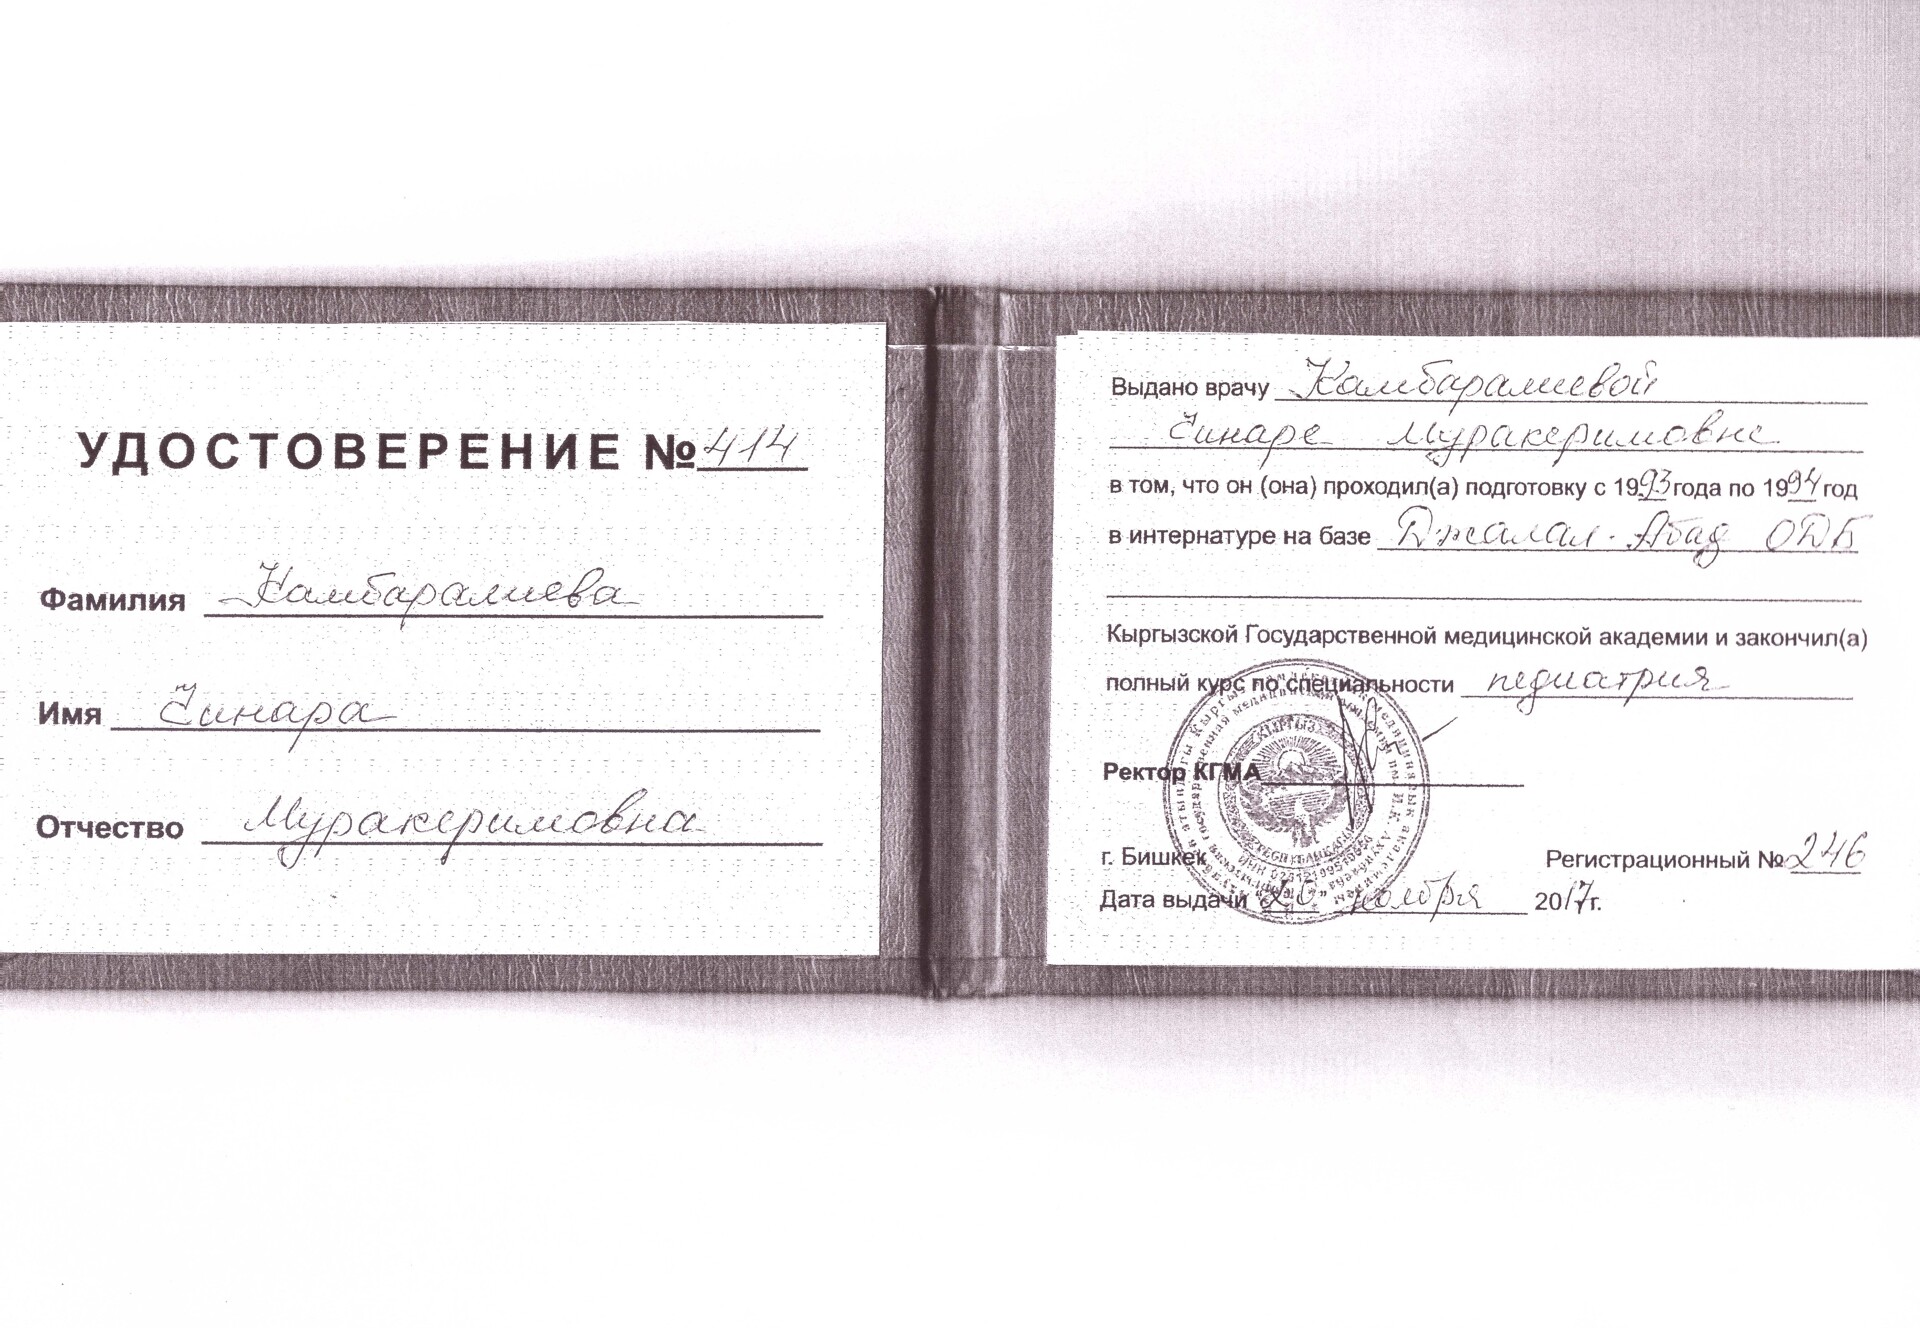 УДОСТОВЕРЕНИЕ № 414
Фамилия Камбаралиева
Имя Чинара
Отчество Муракеримовна
Выдано врачу Камбаралиевой
Чинаре Муракеримовне
в том, что он (она) проходил(а) подготовку с 1993 года по 1994 год
в интернатуре на базе Джалал-Абад ОДБ
Кыргызской Государственной медицинской академии и закончил(а)
полный курс по специальности педиатрия
Ректор КГМА
г. Бишкек
Регистрационный № 246
Дата выдачи "20" ноября 2017г.
КЫРГЫЗ
РЕСПУБЛИКАСЫ